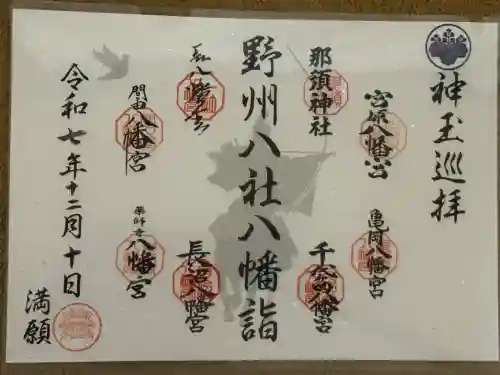 神玉巡拝
宮原八幡宮
亀岡八幡宮
那須神社
八幡宮
野州八社八幡詣
長沼八幡宮
間々田八幡宮
薬師寺八幡宮
令和七年十二月十日
満願